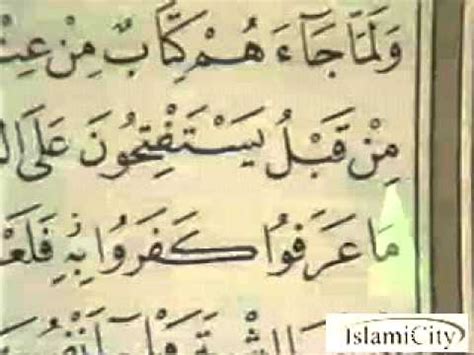 وَلَمَّا جَآءَهُمْ كِتَابٌ مِنْ عِنْ
مِنْ قَبْلُ يَسْتَفْتِحُونَ عَلَى الَّ
مَا عَرَفُوا كَفَرُوا بِهِ فَلَعْ
IslamiCity